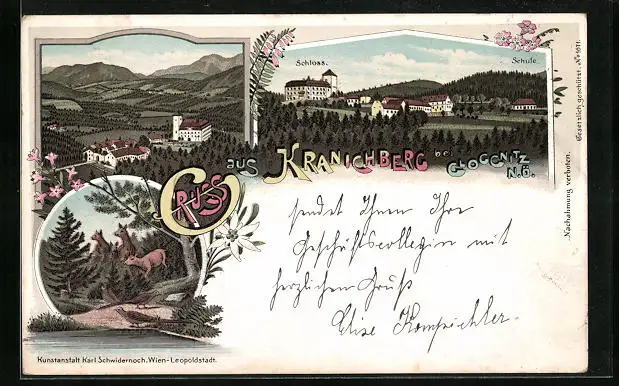 Schloss.
Schule.
GRUSS aus KRANICHBERG bei GLOGGNITZ
N.Ö.
sendet Ihnen Ihre
Geschäftscollegin mit
herzlichem Gruß
Elise
Kunstanstalt Karl Schwidernoch, Wien-Leopoldstadt.
Nachahmung verboten.
Gesetzlich geschützt.